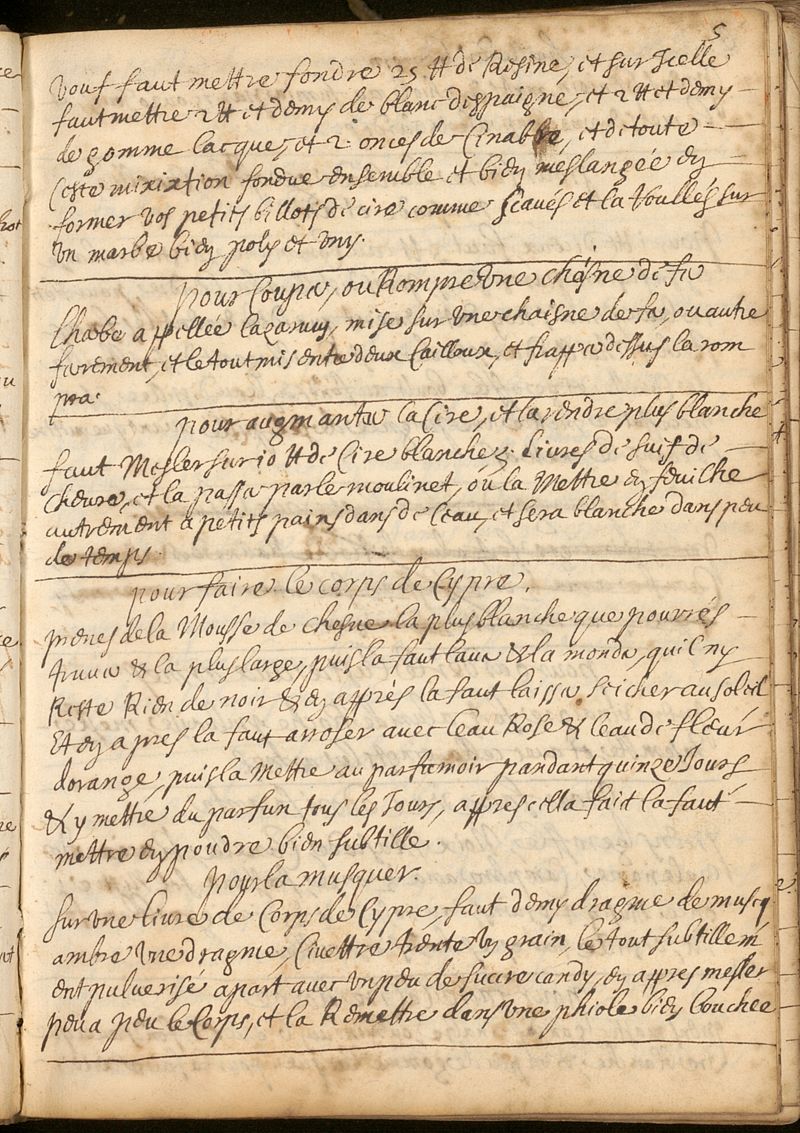 5
Vous faut mettre fondre 25 ₶ de Resine, et sur Icelle
faut mettre 2 ₶ et demy de blanc despaigne, et 2 ₶ et demy
de gomme lacque, et 2 onces de Cinabre, et de toute
Ceste mixixtion fondue ensemble et bien meslangée en
former vos petits billots de cire comme scavés et la Voulles sur
Un marbe bien poly et uny.
pour Couper, ou Rompre Une chesne de fer
Lherbe appellée Lazarum, mise sur Une chaisne de fer, ou autre
ferement, et le tout mis entre deux Cailloux, et frapper dessus la rom
pra.
pour augmanter la Cire, et la rendre plus blanche
faut Mesler sur 10 ₶ de Cire blanche 2. Livres de suif de
cheure, et la passer par le moulinet, ou la Mettre en feuilhe
autrement a petits pains dans de leau, et sera blanche dans peu
de temps.
pour faire le corps de Cypre.
prenes de la Mousse de chesne la plus blanche que pourrés
truuer & la plus large, puis la faut lauer & la monder, quil ny
Reste Rien de noir & en apprés la faut laisser seicher au soleil
Et en apres la faut arroser avec leau Rose & leau de fleur
dorange, puis la Mettre au parfumoir pandant quinze Jours
& y mettre du parfun tous les Jours, appres cella fait la faut
mettre en poudre bien subtille.
pour la musquer.
sur Une liure de Corps de Cypre, faut demy dragme de muscq
ambre Une dragme, Ciuettre trente Un grain, le tout subtillem
ent puluerisé apart avec un peu de succre candy, en appres mesler
peu a peu le Corps, et la Remettre dans Une phiole bien bouchée